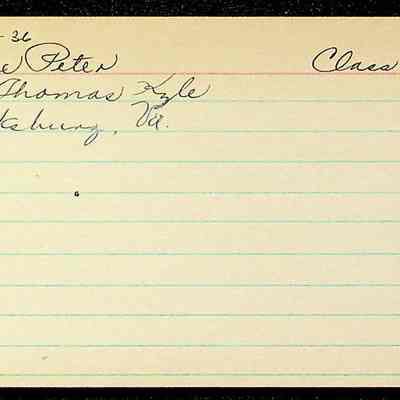 -36
e Peter Class
Thomas Kyle
ksburg, Va.